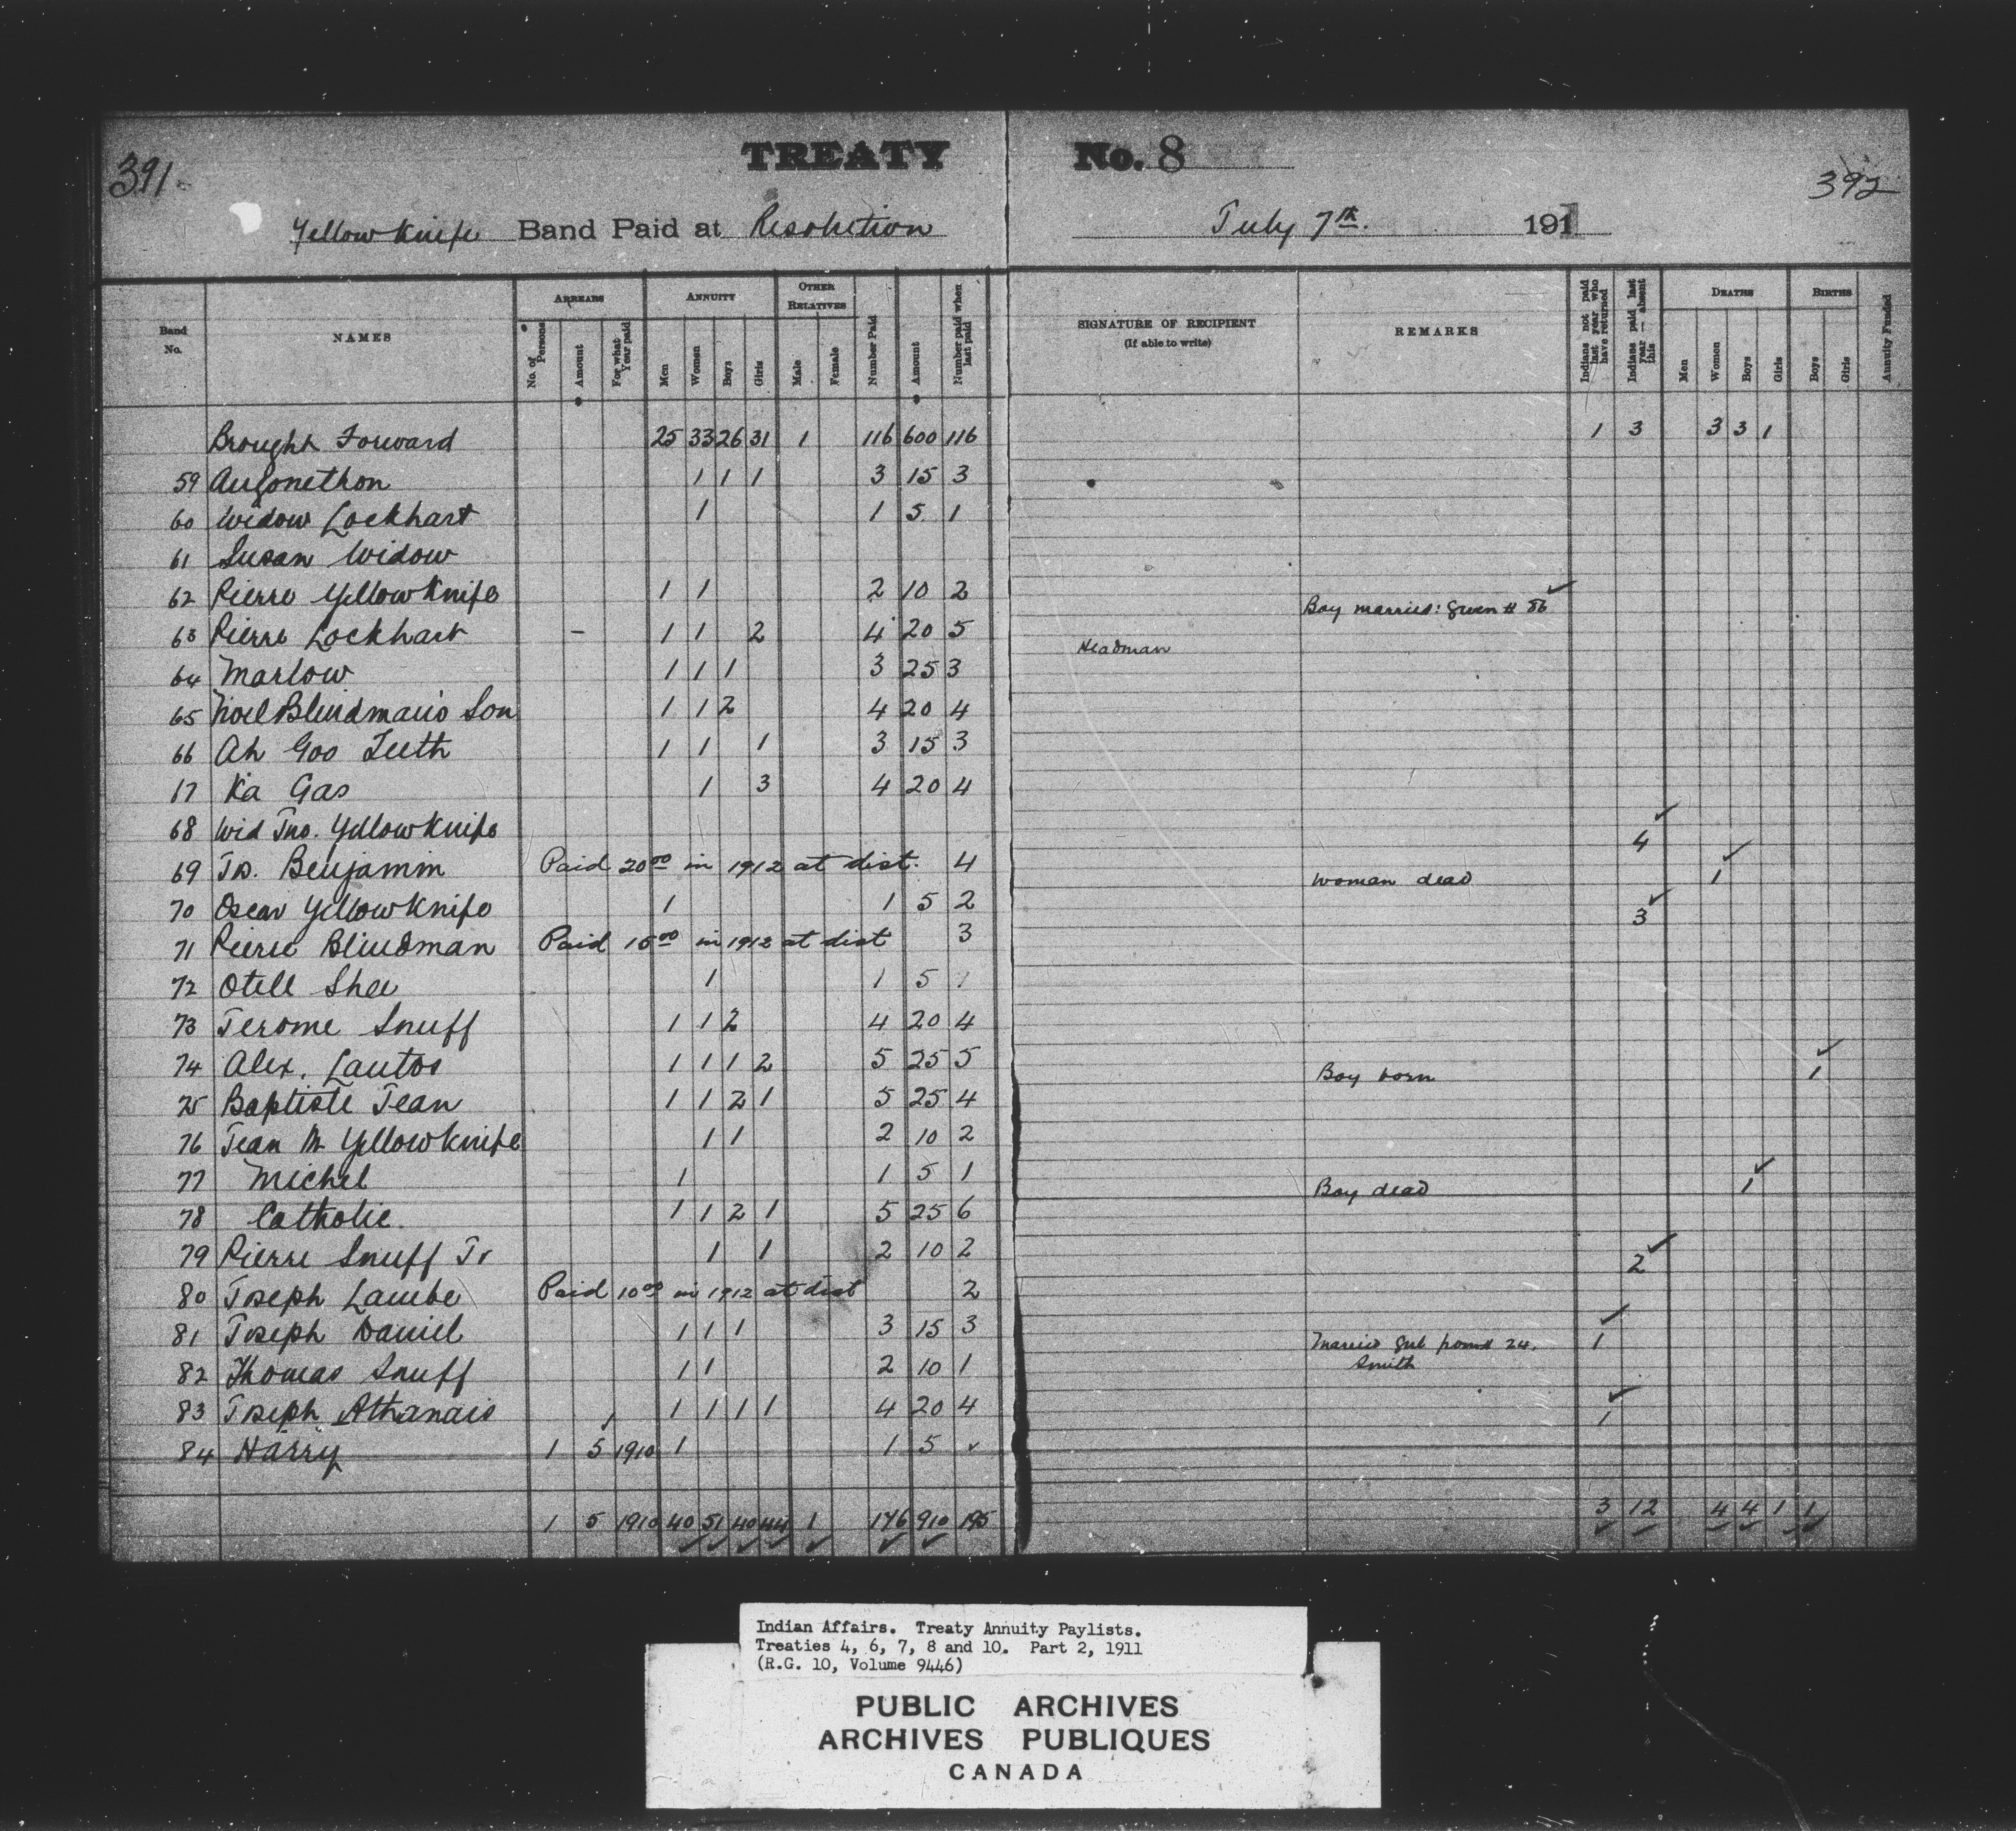 391
TREATY No. 8
392
Yellow Knife Band Paid at Resolution July 7th. 1911
Band No. NAMES ARREARS ANNUITY OTHER RELATIVES Number Paid Amount Number paid when last paid SIGNATURE OF RECIPIENT (If able to write) REMARKS Indians not paid last year who have returned Indians paid last year — absent this DEATHS BIRTHS Annuity Funded
No. of Persons Amount For what Year paid Men Women Boys Girls Male Female Men Women Boys Girls Boys Girls
Brought Forward 25 33 26 31 1 116 600 116 1 3 3 3 1
59 Augonethon 1 1 1 3 15 3
60 Widow Lockhart 1 1 5 1
61 Susan Widow
62 Pierre YellowKnife 1 1 2 10 2
63 Pierre Lockhart - 1 1 2 4 20 5 Boy married: given # 86 ✓
64 Marlow 1 1 1 3 25 3 Headman
65 Noel Blindman's Son 1 1 2 4 20 4
66 Ah Goo Teeth 1 1 1 3 15 3
17 Ka Gas 1 3 4 20 4
68 Wid Jno. YellowKnife
69 Js. Benjamin Paid 20 00 in 1912 at dist. 4 4 ✓
70 Oscar YellowKnife 1 1 5 2 Woman dead 1 ✓
71 Pierre Blindman Paid 15 00 in 1912 at dist 3 3 ✓
72 Otell Shee 1 1 5 1
73 Jerome Snuff 1 1 2 4 20 4
74 Alex. Lautos 1 1 1 2 5 25 5
75 Baptiste Jean 1 1 2 1 5 25 4 Boy born 1 ✓
76 Jean M YellowKnife 1 1 2 10 2
77 Michel 1 1 5 1
78 Catholic 1 1 2 1 5 25 6 Boy dead 1 ✓
79 Pierre Snuff Jr 1 1 2 10 2
80 Joseph Lambe Paid 10 00 in 1912 at dist 2 2 ✓
81 Joseph Daniel 1 1 1 3 15 3
82 Thomas Snuff 1 1 2 10 1 Married girl from # 24. Smith 1 ✓
83 Joseph Athanais 1 1 1 1 4 20 4
84 Harry 1 5 1910 1 1 5 ✓ 1 ✓
1 5 1910 40 51 40 44 1 176 910 195 3 12 4 4 1 1
Indian Affairs. Treaty Annuity Paylists.
Treaties 4, 6, 7, 8 and 10. Part 2, 1911
(R.G. 10, Volume 9446)
PUBLIC ARCHIVES
ARCHIVES PUBLIQUES
CANADA